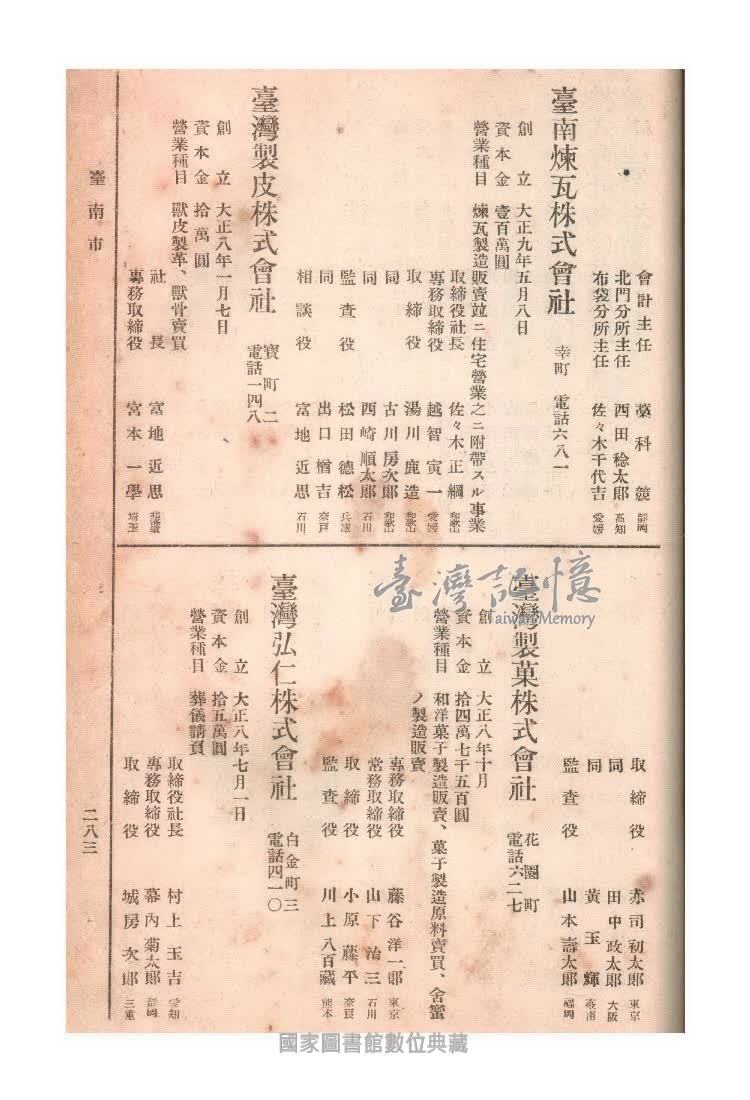 會計主任 藁科競 靜岡
北門分所主任 西田稔太郎 高知
布袋分所主任 佐々木千代吉 愛媛
臺南煉瓦株式會社 幸町 電話六八一
創立 大正九年五月八日
資本金 壹百萬圓
營業種目 煉瓦製造販賣竝ニ住宅營業之ニ附帶スル事業
取締役社長 佐々木正綱 和歌山
專務取締役 越智寅一 愛媛
取締役 湯川鹿造 和歌山
同 古川房次郎 和歌山
同 西崎順太郎 石川
監查役 松田德松 兵庫
同 出口楢吉
相談役 富地近思 石川
臺灣製皮株式會社 寶町二 電話一四八
創立 大正八年一月七日
資本金 拾萬圓
營業種目 獸皮製革、獸骨賣買
社長 富地近思
專務取締役 宮本一學 埼玉
取締役 赤司初太郎 東京
同 田中政太郎 大阪
同 黃玉輝 臺南
監查役 山本壽太郎 福岡
臺灣製菓株式會社 花園町 電話六二七
創立 大正八年十月
資本金 拾四萬七千五百圓
營業種目 和洋菓子製造販賣、菓子製造原料賣買、舍蜜
ノ製造販賣
專務取締役 藤谷洋一郎 東京
常務取締役 山下治三 石川
取締役 小原藤平 奈良
監查役 川上八百藏 熊本
臺灣弘仁株式會社 白金町三 電話四一〇
創立 大正八年七月一日
資本金 拾五萬圓
營業種目 葬儀請負
取締役社長 村上玉吉 愛知
專務取締役 幕內菊太郎 靜岡
取締役 城房次郎 三重
臺南市
二八三
臺灣記憶
Taiwan Memory
國家圖書館數位典藏